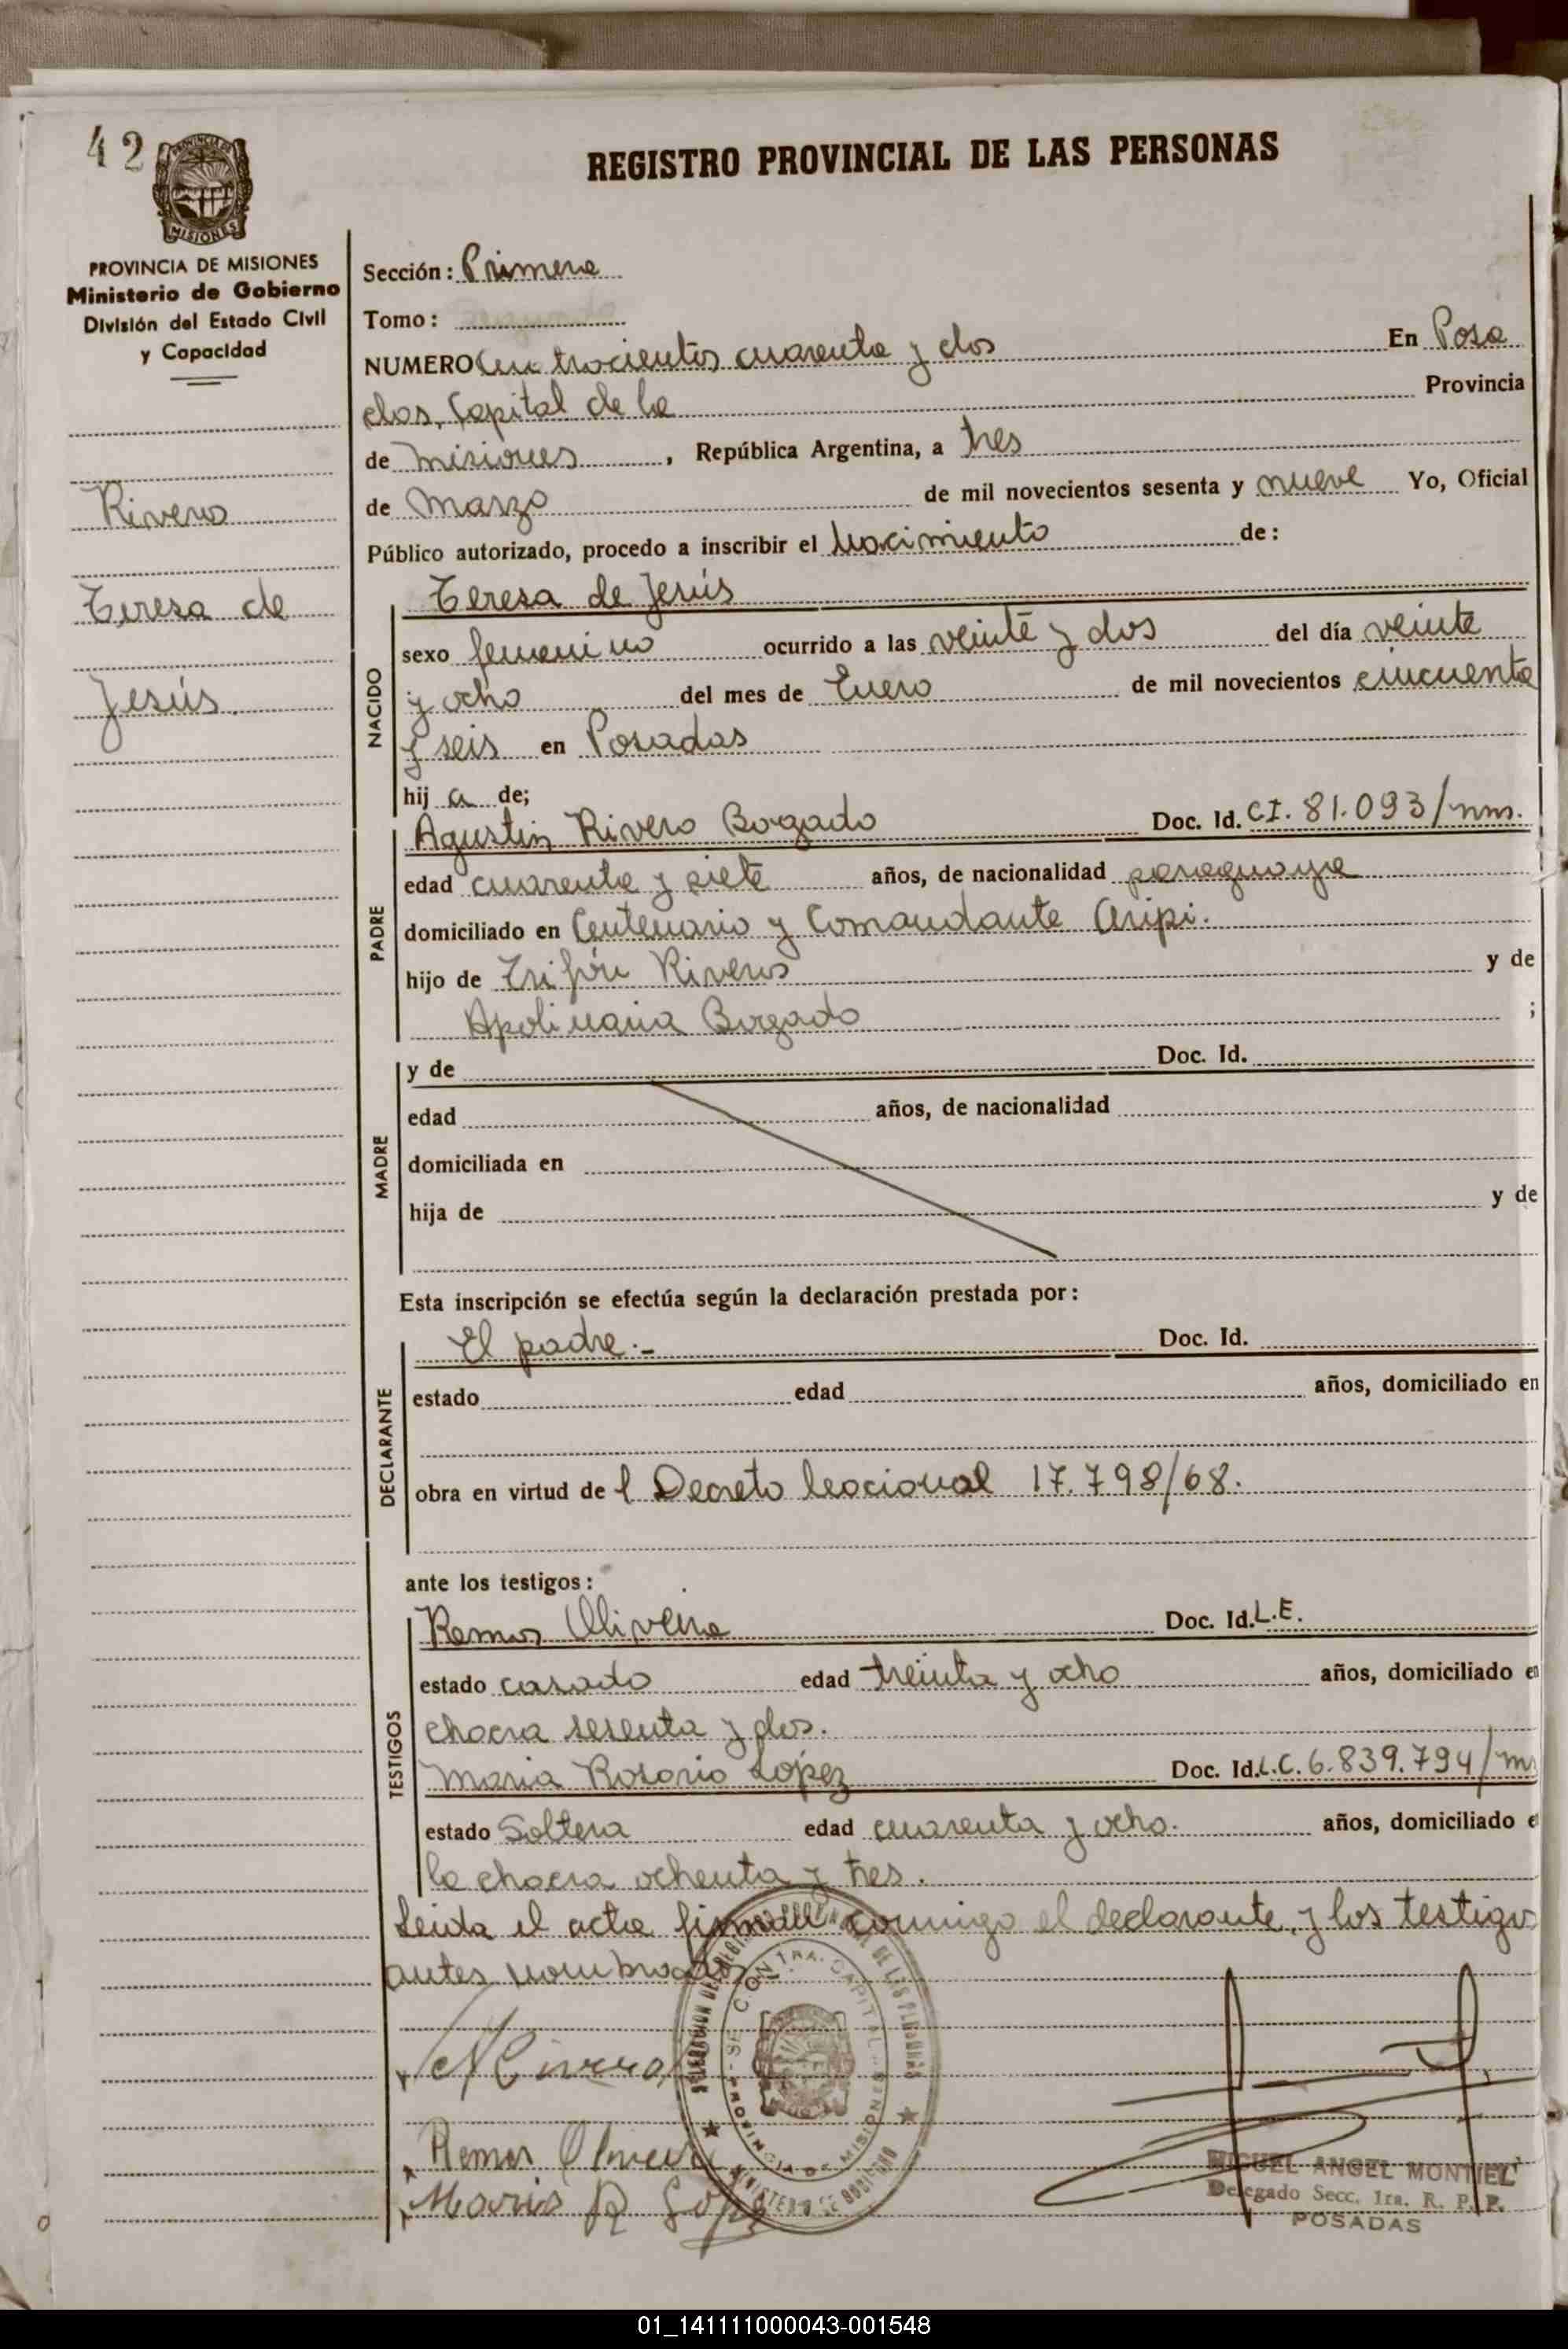 42
PROVINCIA DE
MISIONES
REGISTRO PROVINCIAL DE LAS PERSONAS
PROVINCIA DE MISIONES
Ministerio de Gobierno
División del Estado Civil
y Capacidad
Rivero
Teresa de
Jesús.
Sección: Primera
Tomo:
NUMERO Cuatrocientos cuarenta y dos En Posa
das, Capital de la Provincia
de Misiones, República Argentina, a tres
de Marzo de mil novecientos sesenta y nueve Yo, Oficial
Público autorizado, procedo a inscribir el Nacimiento de:
NACIDO
Teresa de Jesús
sexo femenino ocurrido a las veinte y dos del día veinte
y ocho del mes de Enero de mil novecientos cincuenta
y seis en Posadas
hij a de;
PADRE
Agustín Rivero Bogado Doc. Id. CI. 81.093/mm.
edad cuarenta y siete años, de nacionalidad paraguaya
domiciliado en Centenario y Comandante Aripi.
hijo de Trifón Riveros y de
Apolinaria Bogado ;
MADRE
y de Doc. Id.
edad años, de nacionalidad
domiciliada en
hija de y de
Esta inscripción se efectúa según la declaración prestada por:
DECLARANTE
El padre.- Doc. Id.
estado edad años, domiciliado en
obra en virtud de l Decreto Nacional 17.798/68.
ante los testigos:
TESTIGOS
Ramos Olivera Doc. Id. L.E.
estado casado edad treinta y ocho años, domiciliado en
chacra sesenta y dos.
Maria Rosario López Doc. Id. L.C. 6.839.794/m
estado Soltera edad cuarenta y ocho. años, domiciliado e
la chacra ochenta y tres.
Leída el acta firman conmigo el declarante, y los testigo
antes nombrados
SECC. 1RA. CAPITAL
PROVINCIA DE MISIONES
MINISTERIO DE GOBIERNO
A Rivero
Ramos Olivera
Maria R López
MIGUEL ANGEL MONTIEL
Delegado Secc. 1ra. R. P. P.
POSADAS
01_141111000043-001548